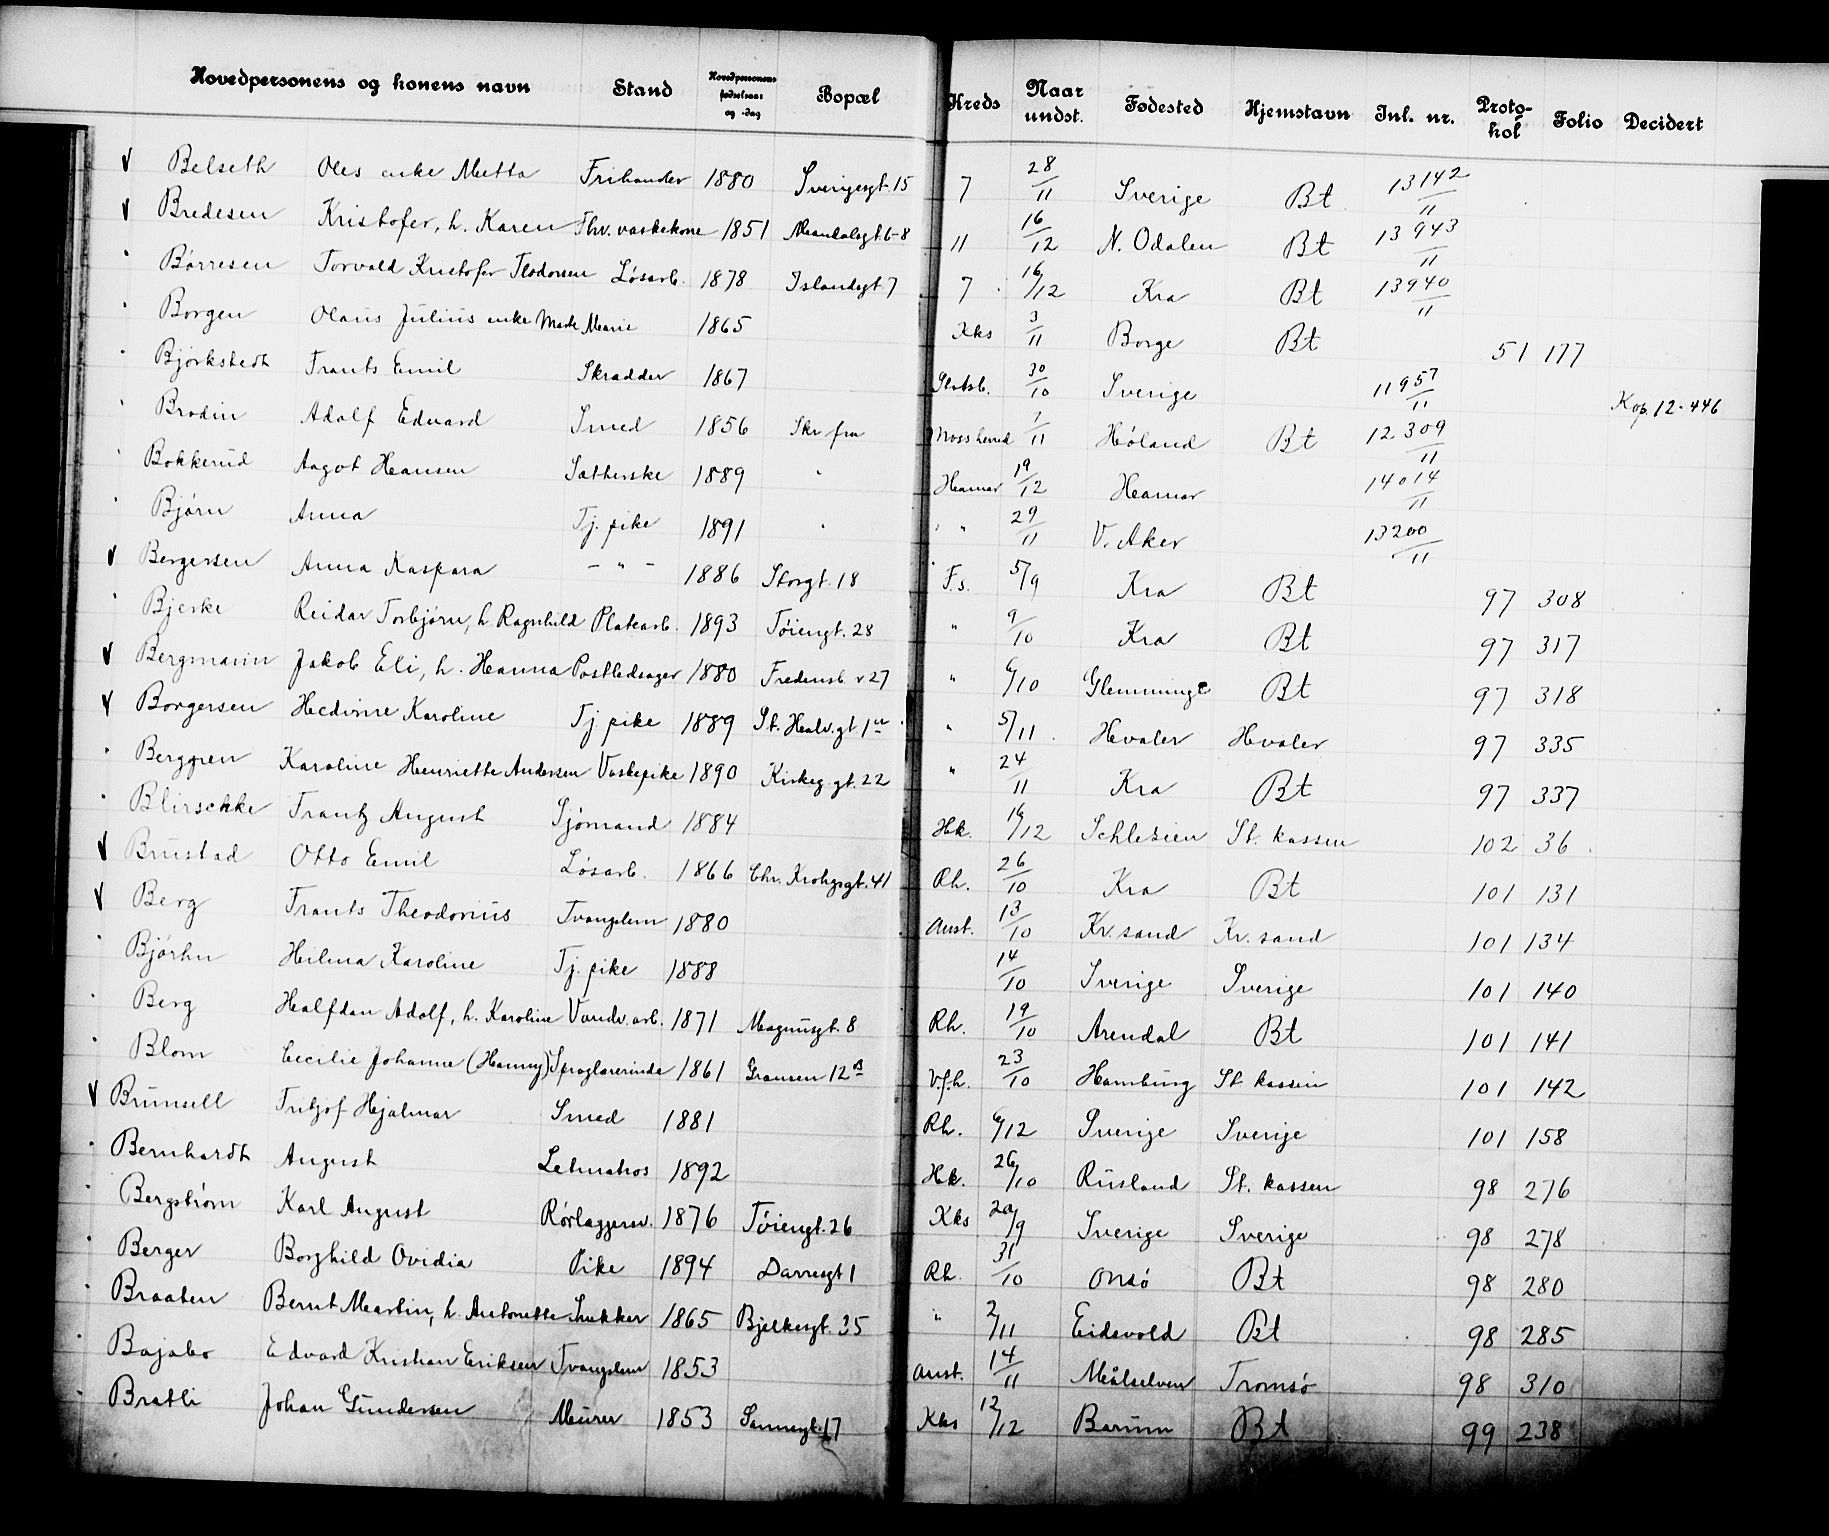 Hovedpersonens og konens navn Stand Hovedpersonens fødselsaar og -dag Bopæl Kreds Naar undst. Fødested Hjemstavn Jnl. nr. Protokol Folio Decidert
V Belseth Oles enke Metta Frihandler 1880 Sverigesgt. 15 7 28/11 Sverige Bt 13142/11
V Bredesen Kristofer, h. Karen Thv. vaskekone 1851 Mandalsgt. 6-8 11 16/12 N. Odalen Bt 13943/11
Børresen Torvald Kristofer Teodorsen Løsarb. 1878 Islandsgt. 7 7 16/12 Kra Bt 13940/11
Borgen Olaus Julius enke Marie 1865 Kks 3/11 Borge Bt 51 177
Bjørkstedt Frants Emil Skrædder 1867 Slotsb. 30/10 Sverige 11957/11 Kop. 12-446
Brodin Adolf Edvard Smed 1856 Skr. fra Moss herred 7/11 Høland Bt 12309/11
Bokkerud Aagot Hansen Sætherske 1889 " Hamar 19/12 Hamar 14014/11
Bjørn Anna Tj. pike 1891 " " 29/11 V. Aker 13200/11
V Bergersen Anna Kaspara - " - 1886 Storgt. 18 F.s. 5/9 Kra Bt 97 308
Bjerke Reidar Torbjørn, h. Ragnhild Platearb. 1893 Tøiengt. 28 " 9/10 Kra Bt 97 317
V Bergmann Jakob Eli, h. Hanna Postledsager 1880 Fredensb.v 27 " 6/10 Glemminge Bt 97 318
V Borgersen Hedvine Karoline Tj. pike 1889 St. Halv. gt 1 " 5/11 Hvaler Hvaler 97 335
Berggren Karoline Henriette Andersen Vaskepike 1890 Kirkeg. gt. 22 " 24/11 Kra Bt 97 337
Blirschke Frantz August Sjømand 1884 Hk. 16/12 Schlesien St. kassen 102 36
V Brustad Otto Emil Løsarb. 1866 Chr. Krohgsgt. 41 Rh. 26/10 Kra Bt 101 131
V Berg Frants Theodorius Tvangslem 1880 Anst. 13/10 Kr. sand Kr. sand 101 134
Bjørhn Hilma Karoline Tj. pike 1888 14/10 Sverige Sverige 101 140
Berg Halfdan Adolf, h. Karoline Vandv. arb. 1871 Magnusgt. 8 Rh. 19/10 Arendal Bt 101 141
Blom Cecilie Johanne (Hanny) Sproglærerinde 1861 Grønsen 12 V.f.h. 23/10 Hamburg St. kassen 101 142
V Brunsell Fritjof Hjalmar Smed 1881 Rh. 6/12 Sverige Sverige 101 158
Bernhardt August Letmatros 1892 Hk. 26/10 Rusland St. kassen 98 276
Bergstrøm Karl August Rørlæggersv. 1876 Tøiengt. 26 Kks 20/9 Sverige Sverige 98 278
Berger Borghild Ovidia Pike 1894 Darresgt 1 Rh. 31/10 Onsø Bt 98 280
Braaten Bernt Martin, h. Antonette Snekker 1865 Bjelkesgt. 35 " 2/11 Eidsvold Bt 98 285
Bajabo Edvard Kristian Eriksen Tvangslem 1853 Anst. 14/11 Målselven Tromsø 98 310
Bratli Johan Gundersen Murer 1853 Sannergt. 17 Kks 12/12 Bærum Bt 99 238